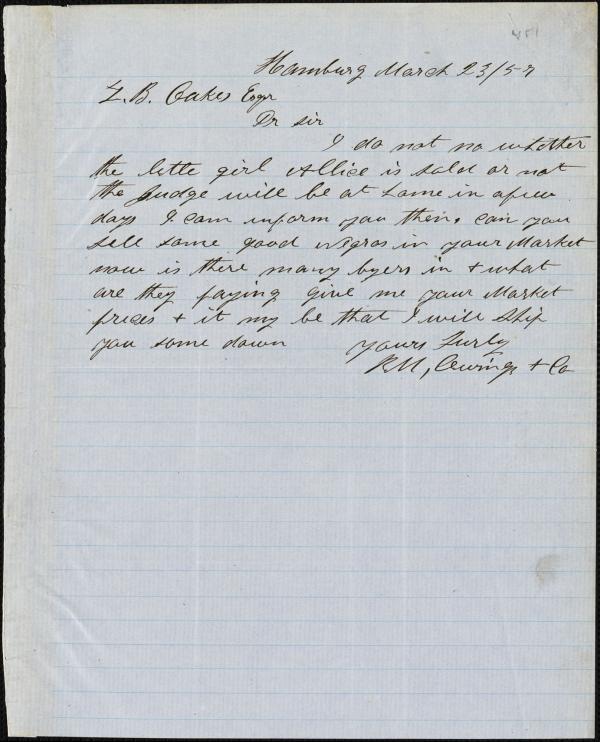 451
Hamburg March 23/57
Z. B. Oakes Esqr
Dr sir
I do not no whether
the little girl Allice is sold or not
the Judge will be at home in a few
days I can inform you then, can you
sell some good nigros in your Market
now is there many byers in & what
are they paying give me your Market
prices & it my be that I will Ship
you some down yours Turly
R M, Owings & Co